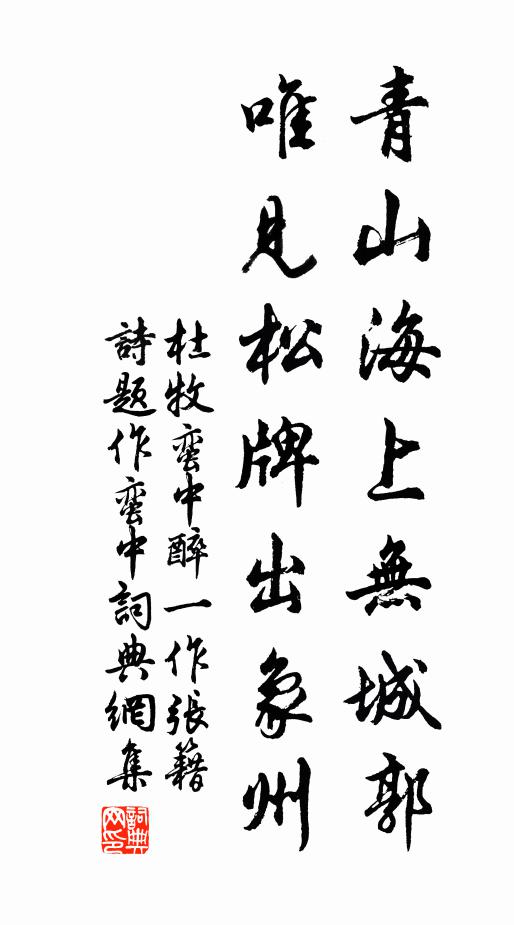 青山海上無城郭
唯見松牌出象州
杜牧蛮中醉一作張籍
詩題作蛮中詞典網集
詞典网印